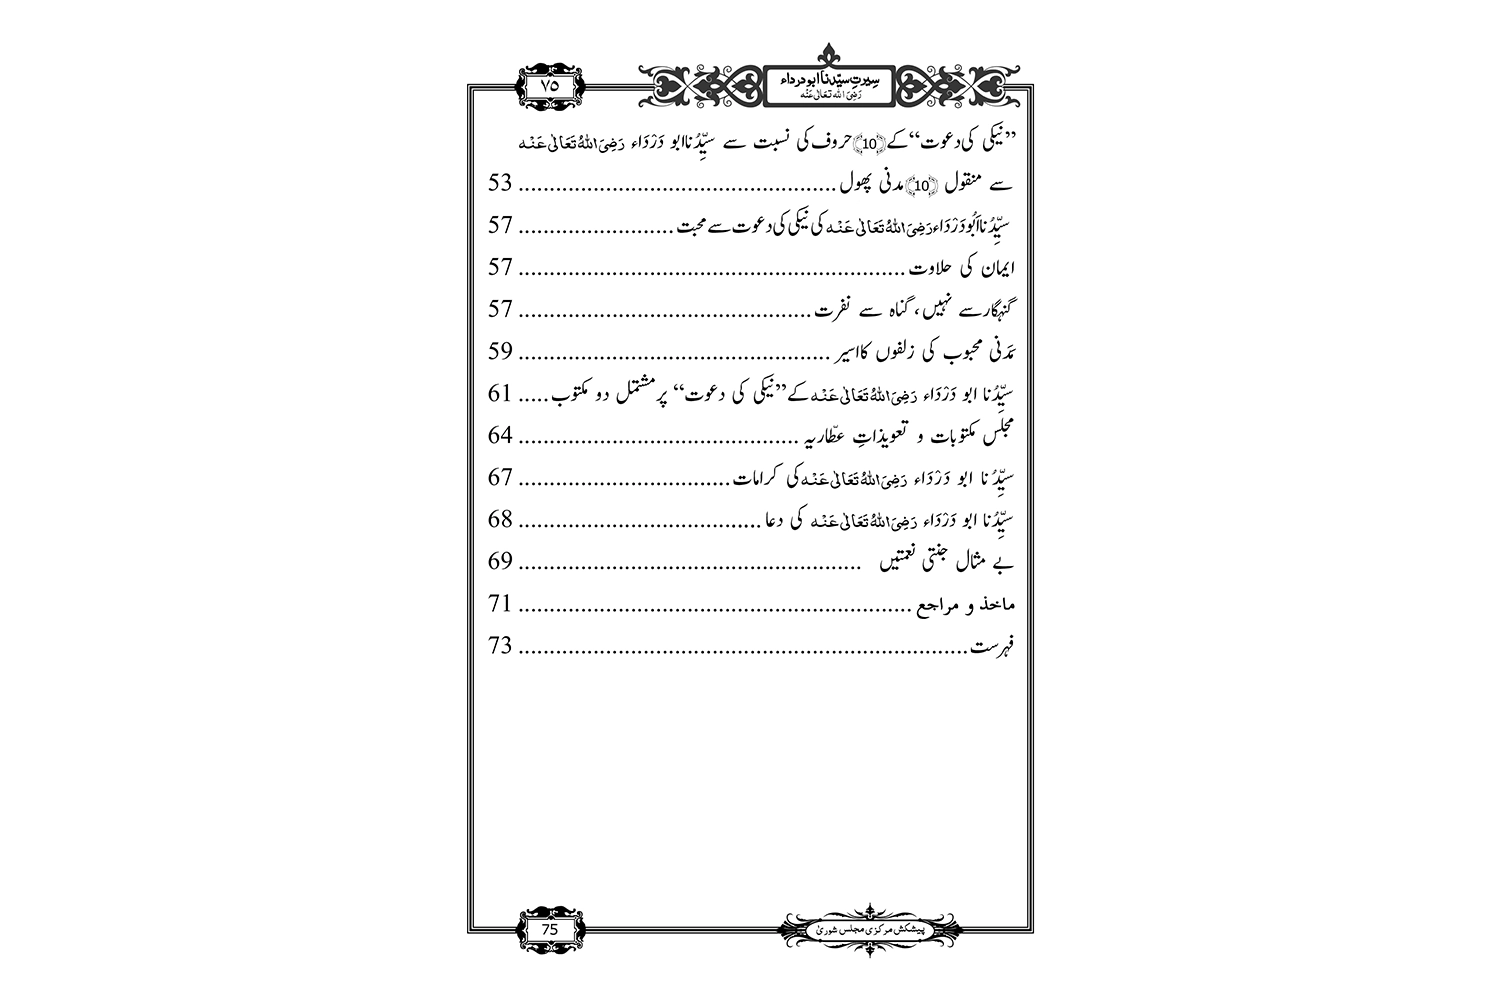 ۷۵
سِیرتِ سیّدنا ابو درداء
رَضِیَ اللہُ تَعَالٰی عَنْہ
”نیکی کی دعوت“ کے ﴿10﴾ حروف کی نسبت سے سیِّدُنا ابو دَرْدَاء رَضِیَ اللہُ تَعَالٰی عَنْہ
سے منقول ﴿10﴾ مدنی پھول .................................................. 53
سیِّدُنا اَبُو دَرْدَاء رَضِیَ اللہُ تَعَالٰی عَنْہ کی نیکی کی دعوت سے محبت ......................... 57
ایمان کی حلاوت .............................................................. 57
گنہگار سے نہیں، گناہ سے نفرت ............................................... 57
مَدَنی محبوب کی زلفوں کا اسیر .................................................. 59
سیِّدُنا ابو دَرْدَاء رَضِیَ اللہُ تَعَالٰی عَنْہ کے ”نیکی کی دعوت“ پر مشتمل دو مکتوب ..... 61
مجلس مکتوبات و تعویذاتِ عطّاریہ ............................................. 64
سیِّدُنا ابو دَرْدَاء رَضِیَ اللہُ تَعَالٰی عَنْہ کی کرامات .................................. 67
سیِّدُنا ابو دَرْدَاء رَضِیَ اللہُ تَعَالٰی عَنْہ کی دعا ....................................... 68
بے مثال جنتی نعمتیں ....................................................... 69
ماخذ و مراجع ............................................................... 71
فہرست ........................................................................ 73
پیشکش مرکزی مجلس شوریٰ
75